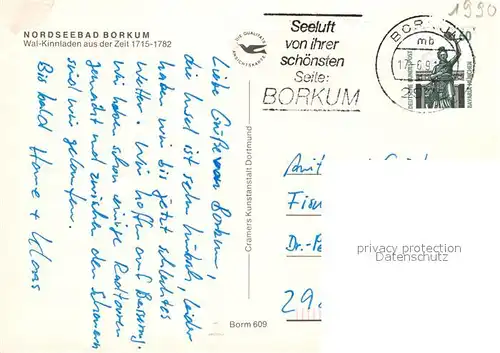 1990
NORDSEEBAD BORKUM
Wal-Kinnladen aus der Zeit 1715-1782
DIE QUALITÄTS
ANSICHTSKARTE
Seeluft
von ihrer
schönsten
Seite:
BORKUM
BORKUM
mb
60
DEUTSCHE BUNDESPOST
BAVARIA MÜNCHEN
Liebe Grüße von Borkum,
die Insel ist sehr hübsch, leider
haben wir bis jetzt schlechtes
Wetter. Wir hoffen auf Besserung.
Wir haben schon einige Radtouren
gemacht und zwischen den Schauern
sind wir gelaufen.
Bis bald
Cramers Kunstanstalt Dortmund
Borm 609
Dr.-
29
privacy protection
Datenschutz